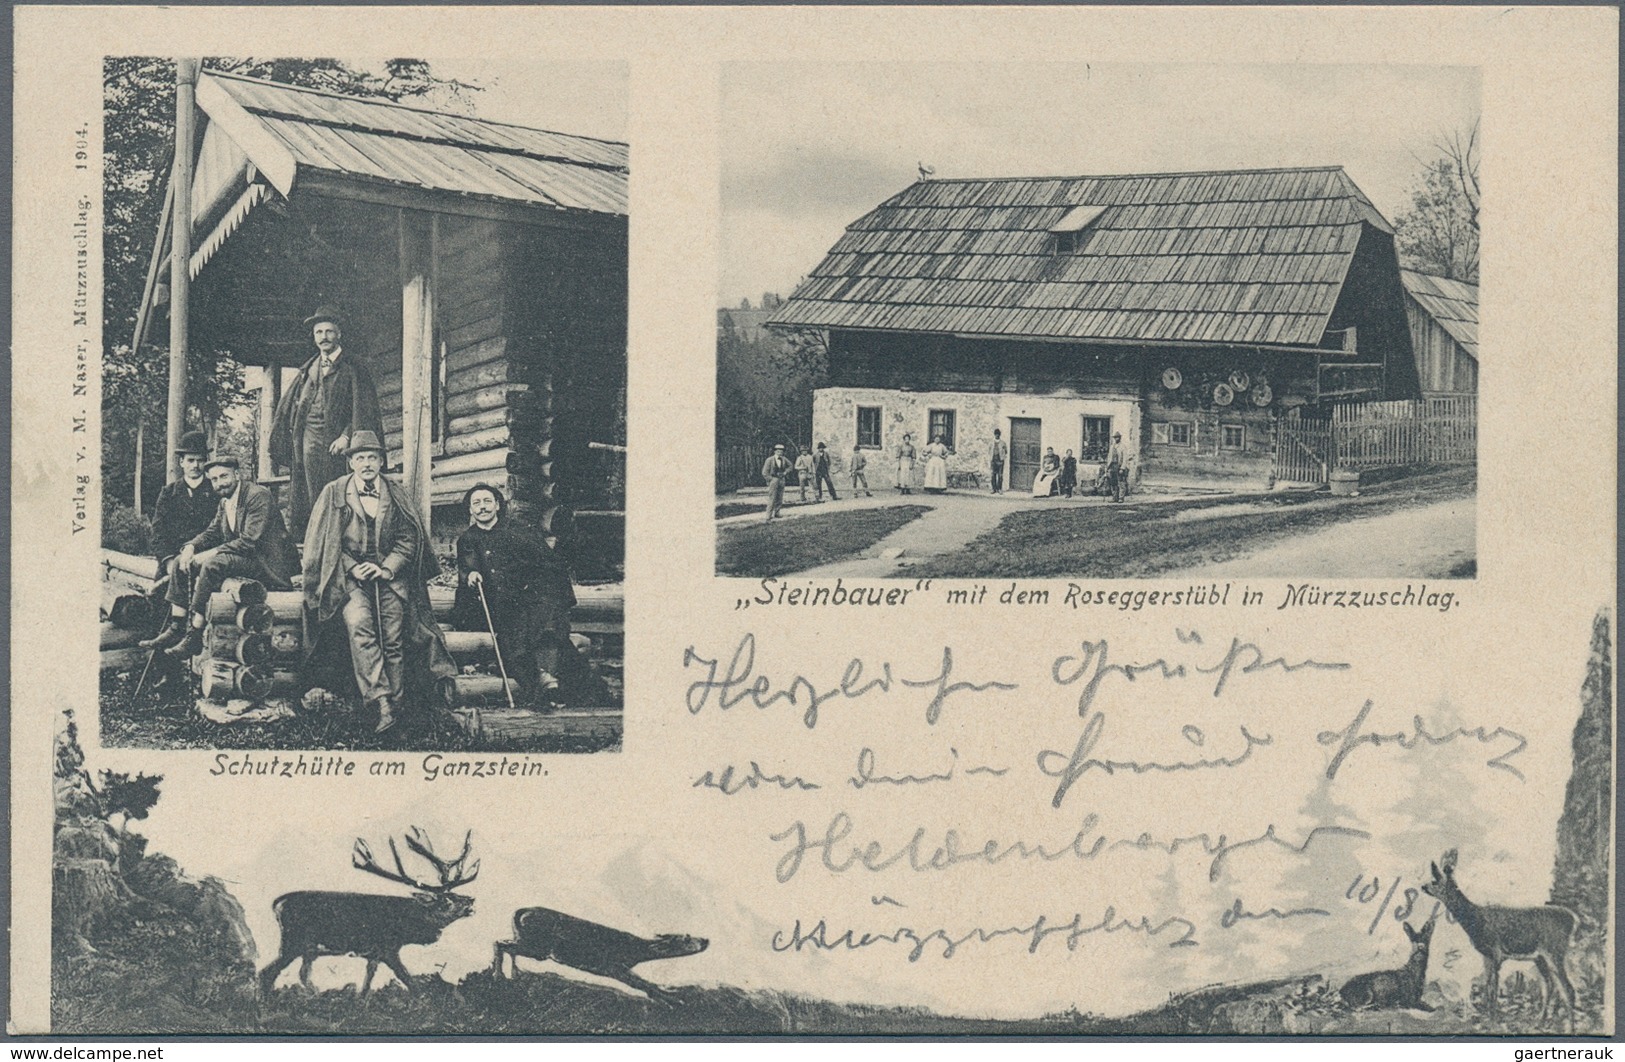 Verlag v. M. Naser, Mürzzuschlag. 1904.
Schutzhütte am Ganzstein.
„Steinbauer“ mit dem Roseggerstübl in Mürzzuschlag.
Herzliche Grüßen
von dein Freund Franz
Heldenberger
Mürzzuschlag den 10/8
www.delcampe.net
gaertnerauk